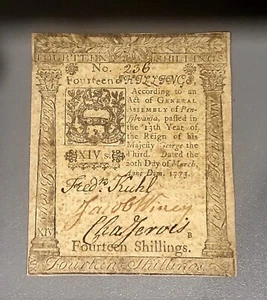 FOURTEEN SHILLINGS
No. 236
Fourteen SHILLINGS.
According to an
Act of GENERAL
ASSEMBLY of Pen-
sylvania, passed in
the 13th Year of
the Reign of his
Majesty George the
Third. Dated the
20th Day of March,
Anno Dom. 1773.
XIVs.
Fredk Kuhl
Cha Jervis
B
Fourteen Shillings.
XIV
Fourteen Shillings